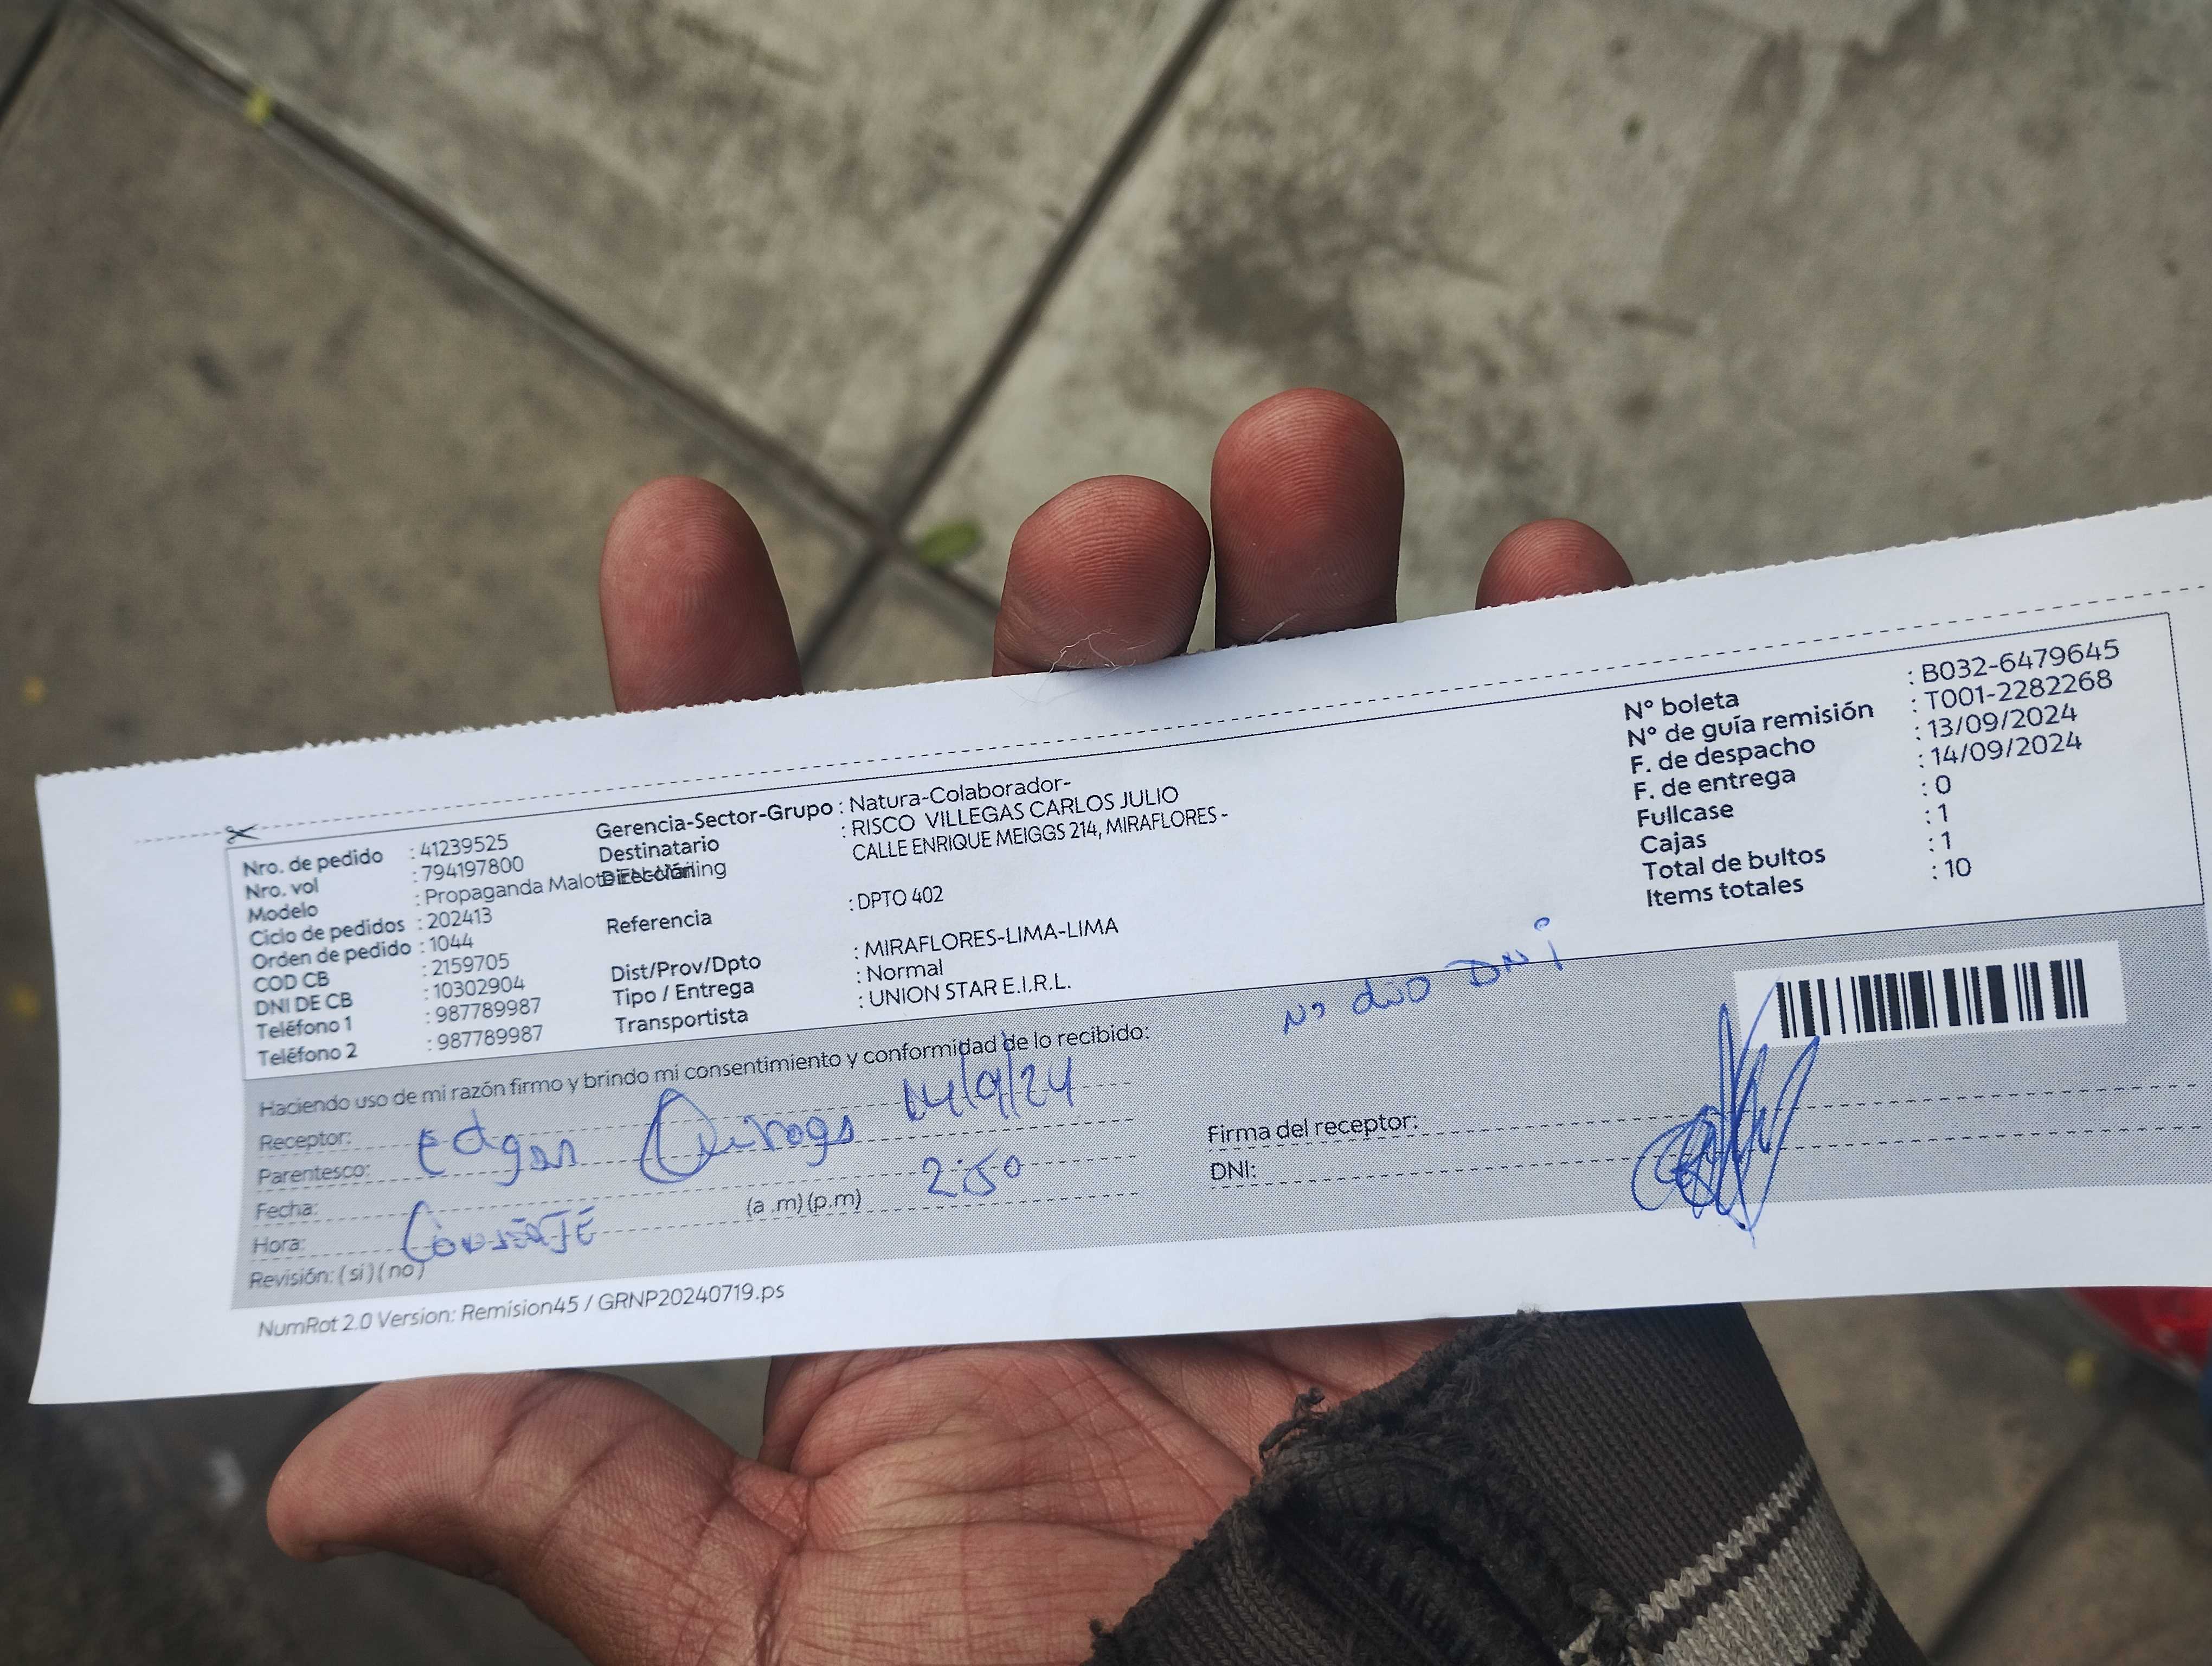 Nro. de pedido : 41239525
Nro. vol : 794197800
Modelo : Propaganda
Ciclo de pedidos : 202413
Orden de pedido : 1044
COD CB : 2159705
DNI DE CB : 10302904
Teléfono 1 : 987789987
Teléfono 2 : 987789987
Gerencia-Sector-Grupo : Natura-Colaborador-
Destinatario : RISCO VILLEGAS CARLOS JULIO
Dirección CALLE ENRIQUE MEIGGS 214, MIRAFLORES -
Referencia : DPTO 402
Dist/Prov/Dpto : MIRAFLORES-LIMA-LIMA
Tipo / Entrega : Normal
Transportista : UNION STAR E.I.R.L.
N° boleta : B032-6479645
N° de guía remisión : T001-2282268
F. de despacho : 13/09/2024
F. de entrega : 14/09/2024
Fullcase : 0
Cajas : 1
Total de bultos : 1
Items totales : 10
Haciendo uso de mi razón firmo y brindo mi consentimiento y conformidad de lo recibido:
No dio DNi
Receptor: Edgar Quiroga 14/9/24
Parentesco:
Fecha:
Hora: (a .m) (p.m) 2:50
Revisión: ( si ) ( no )
Firma del receptor:
DNI:
NumRot 2.0 Version: Remision45 / GRNP20240719.ps